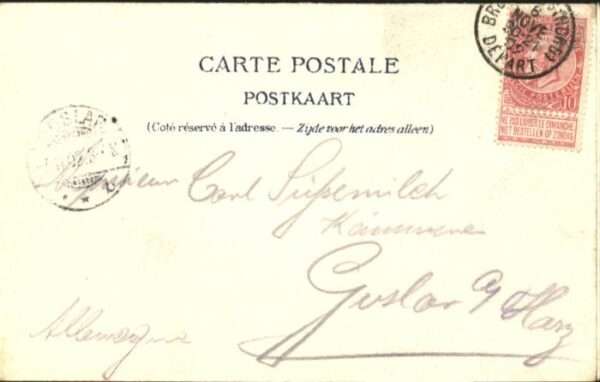 CARTE POSTALE
POSTKAART
(Coté réservé à l'adresse. — Zyde voor het adres alleen)
DÉPART
10
NE PAS LIVRER LE DIMANCHE
NIET BESTELLEN OP ZONDAG
Monsieur Carl Süssemilch
Goslar a/ Harz
Allemagne